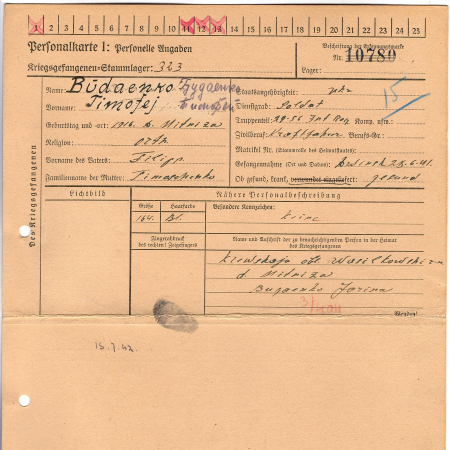 1 2 3 4 5 6 7 8 9 10 11 12 13 14 15 16 17 18 19 20 21 22 23 24 25
Personalkarte I: Personelle Angaben
Kriegsgefangenen-Stammlager: 323
Beschriftung der Erkennungsmarke
Nr. 10780
Lager:
Des Kriegsgefangenen
Name: Budaenko Будаенко
Vorname: Timofej Тимофей
Geburtstag und -ort: 1916. d. Mitniza
Religion: orth.
Vorname des Vaters: Filipp
Familienname der Mutter: Timoschenko
Staatsangehörigkeit: ukr
Dienstgrad: Soldat
15
Truppenteil: Inf Reg Komp. usw.:
Zivilberuf: Kraftfahrer Berufs-Gr.:
Matrikel Nr. (Stammrolle des Heimatstaates):
Gefangennahme (Ort und Datum): 41.
Ob gesund, krank, verwundet eingeliefert: gesund
Lichtbild
Nähere Personalbeschreibung
Größe
Haarfarbe
Besondere Kennzeichen:
164. Bl.
keine
Fingerabdruck
des rechten! Zeigefingers
Name und Anschrift der zu benachrichtigenden Person in der Heimat
des Kriegsgefangenen
Kiewskaja obl Wasilkowski
d Mitniza
Budaenko Jarina
Wenden!
15.7.42.